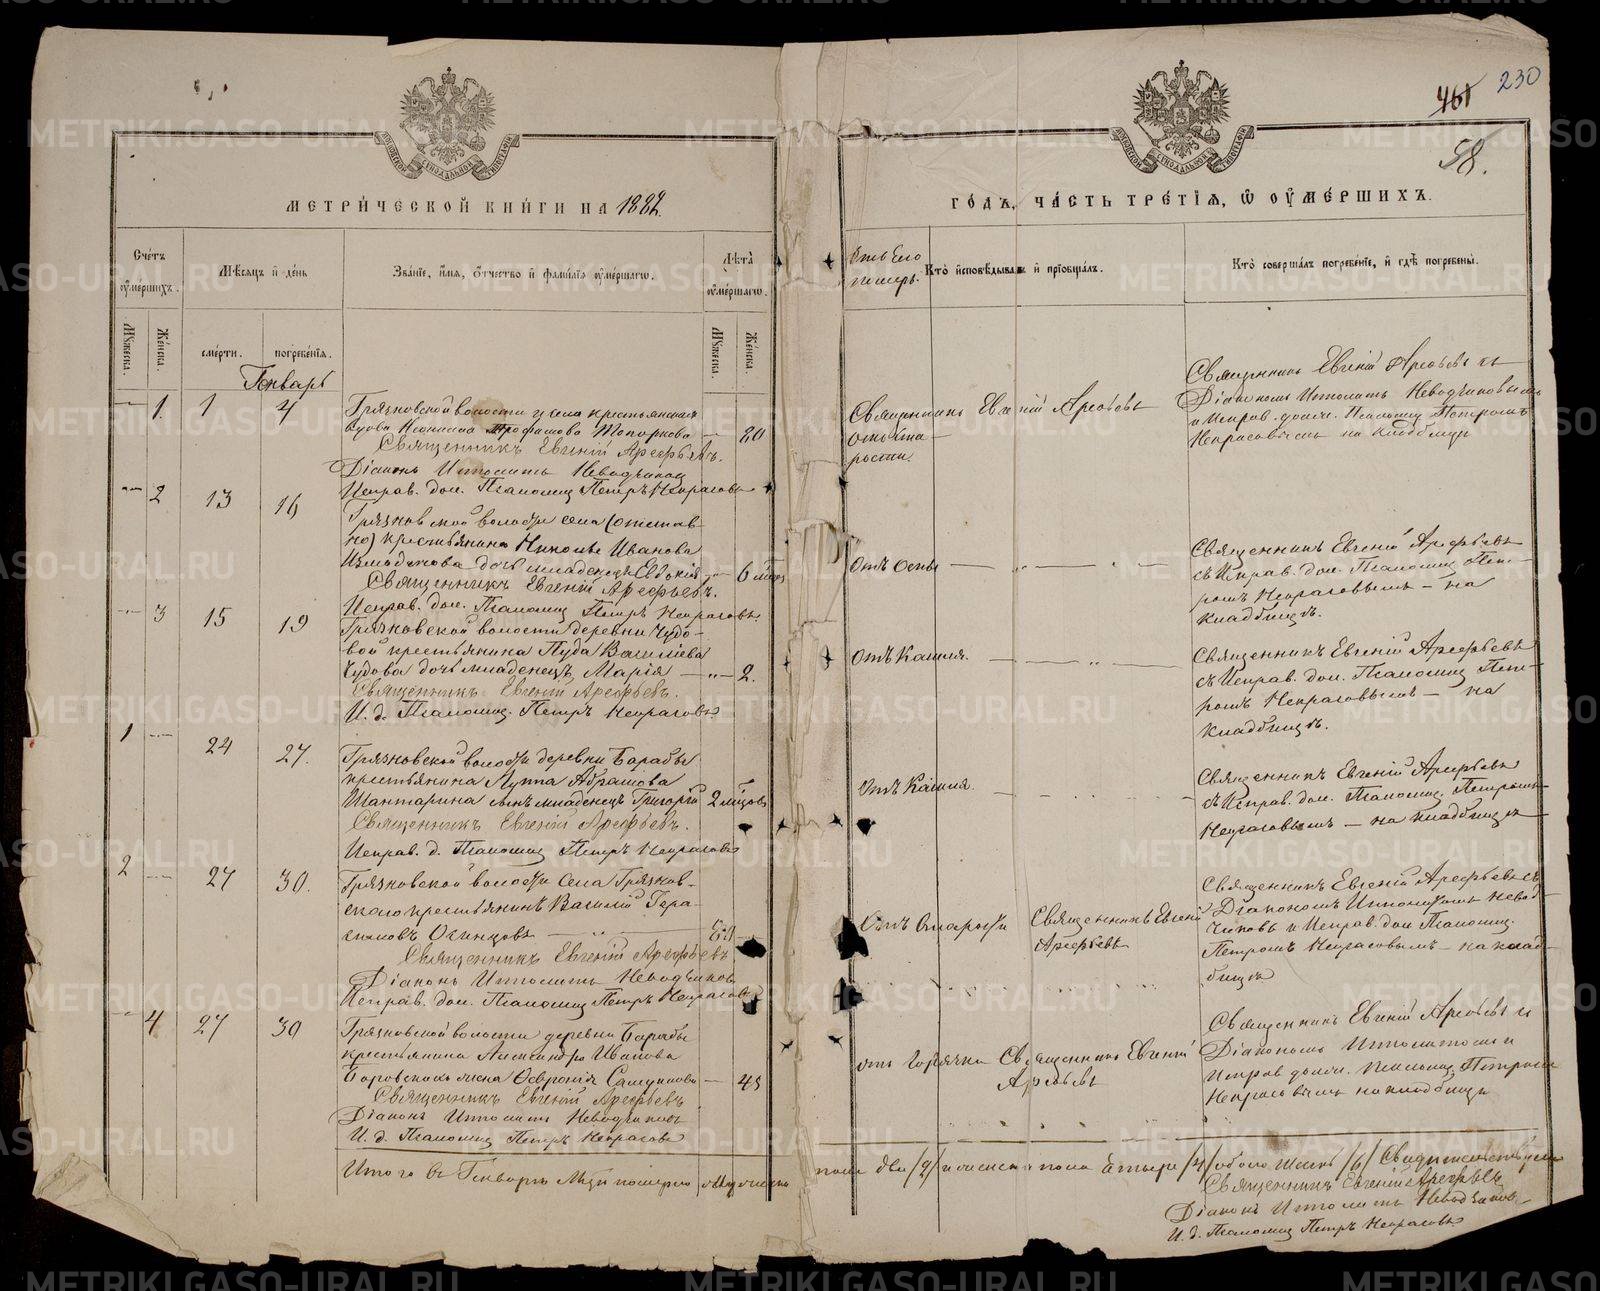 230
461
58.
МЕТРИЧЕСКОЙ КНИГИ НА 1882.
ГОДЪ, ЧАСТЬ ТРЕТІЯ, Ѿ ОУМЕРШИХЪ.
Счетъ оумершихъ.
Мѣсяцъ и день
Званіе, имя, отчество и фамилія оумершагѡ.
Лѣта оумершагѡ.
Отъ чего померъ.
Кто исповѣдывалъ и пріобщалъ.
Кто совершалъ погребеніе, и гдѣ погребены.
Мужеска.
Женска.
смерти.
погребенія.
Мужеска.
Женска.
Генварь
1. 1 4
Грязновской волости
вдова
Топоркова — 80
Священникъ Евгеній Арефьевъ.
Діаконъ Ипполитъ Неводчиковъ
Исправ. дол. Псаломщ. Петръ Некрасовъ
Священникъ Евгеній Арефьевъ
отъ старости.
Священникъ Евгеній Арефьевъ съ
Діакономъ Ипполитъ Неводчиковымъ
и Исправ. долж. Псаломщ. Петромъ
Некрасовымъ на кладбищѣ
2 13 16
Грязновской волости села (отстав-
но) крестьянина Николая Иванова
дочь младенецъ Евдокія — 6 мѣсяц
Священникъ Евгеній Арефьевъ.
Исправ. дол. Псаломщ. Петръ Некрасовъ.
Отъ оспы
Священникъ Евгеній Арефьевъ
съ Исправ. дол. Псаломщ. Пет-
ромъ Некрасовымъ — на
кладбищѣ.
3 15 19
Грязновской волости деревни Чудо-
вой крестьянина Пуда Василіева
Чудова дочь младенецъ Марія — „ — 2.
Священникъ Евгеній Арефьевъ.
И. д. Псаломщ. Петръ Некрасовъ
Отъ Кашля.
Священникъ Евгеній Арефьевъ
съ Исправ. дол. Псаломщ. Пет-
ромъ Некрасовымъ — на
кладбищѣ.
1 24 27.
Грязновской волости деревни Барабы
крестьянина Луппа Абрамова
Шантарина сынъ младенецъ Григорій 2 мѣсцовъ
Священникъ Евгеній Арефьевъ.
Исправ. д. Псаломщ. Петръ Некрасовъ
Отъ Кашля.
Священникъ Евгеній Арефьевъ
съ Исправ. дол. Псаломщ. Петромъ
Некрасовымъ — на кладбищѣ
2 27 30.
Грязновской волости села Грязнов-
скаго крестьянинъ Василій Гера-
симовъ Осинцовъ
Священникъ Евгеній Арефьевъ
Діаконъ Ипполитъ Неводчиковъ
Исправ. дол. Псаломщ. Петръ Некрасовъ
Отъ старости
Священникъ Евгеній
Арефьевъ
Священникъ Евгеній Арефьевъ съ
Діакономъ Ипполитомъ Невод-
чиковъ и Исправ. дол. Псаломщ.
Петромъ Некрасовымъ — на клад-
бищѣ
4 27 30
Грязновской волости деревни Барабы
крестьянина Александра Иванова
Боровскихъ жена Февронія — 45
Священникъ Евгеній Арефьевъ
Діаконъ Ипполитъ Неводчиковъ
И. д. Псаломщ. Петръ Некрасовъ
отъ горячки
Священникъ Евгеній
Арефьевъ
Священникъ Евгеній Арефьевъ и
Діакономъ Ипполитомъ и
Исправ. долж. Псаломщ. Петромъ
Некрасовымъ на кладбищѣ
Итого въ Генварѣ м-цѣ померло мужеска
пола два /2/ и женска пола четыре /4/ обоего шесть /6/ Свидѣтельствуемъ
Священникъ Евгеній Арефьевъ
Діаконъ Ипполитъ Неводчиковъ
И. д. Псаломщ. Петръ Некрасовъ
METRIKI.GASO-URAL.RU